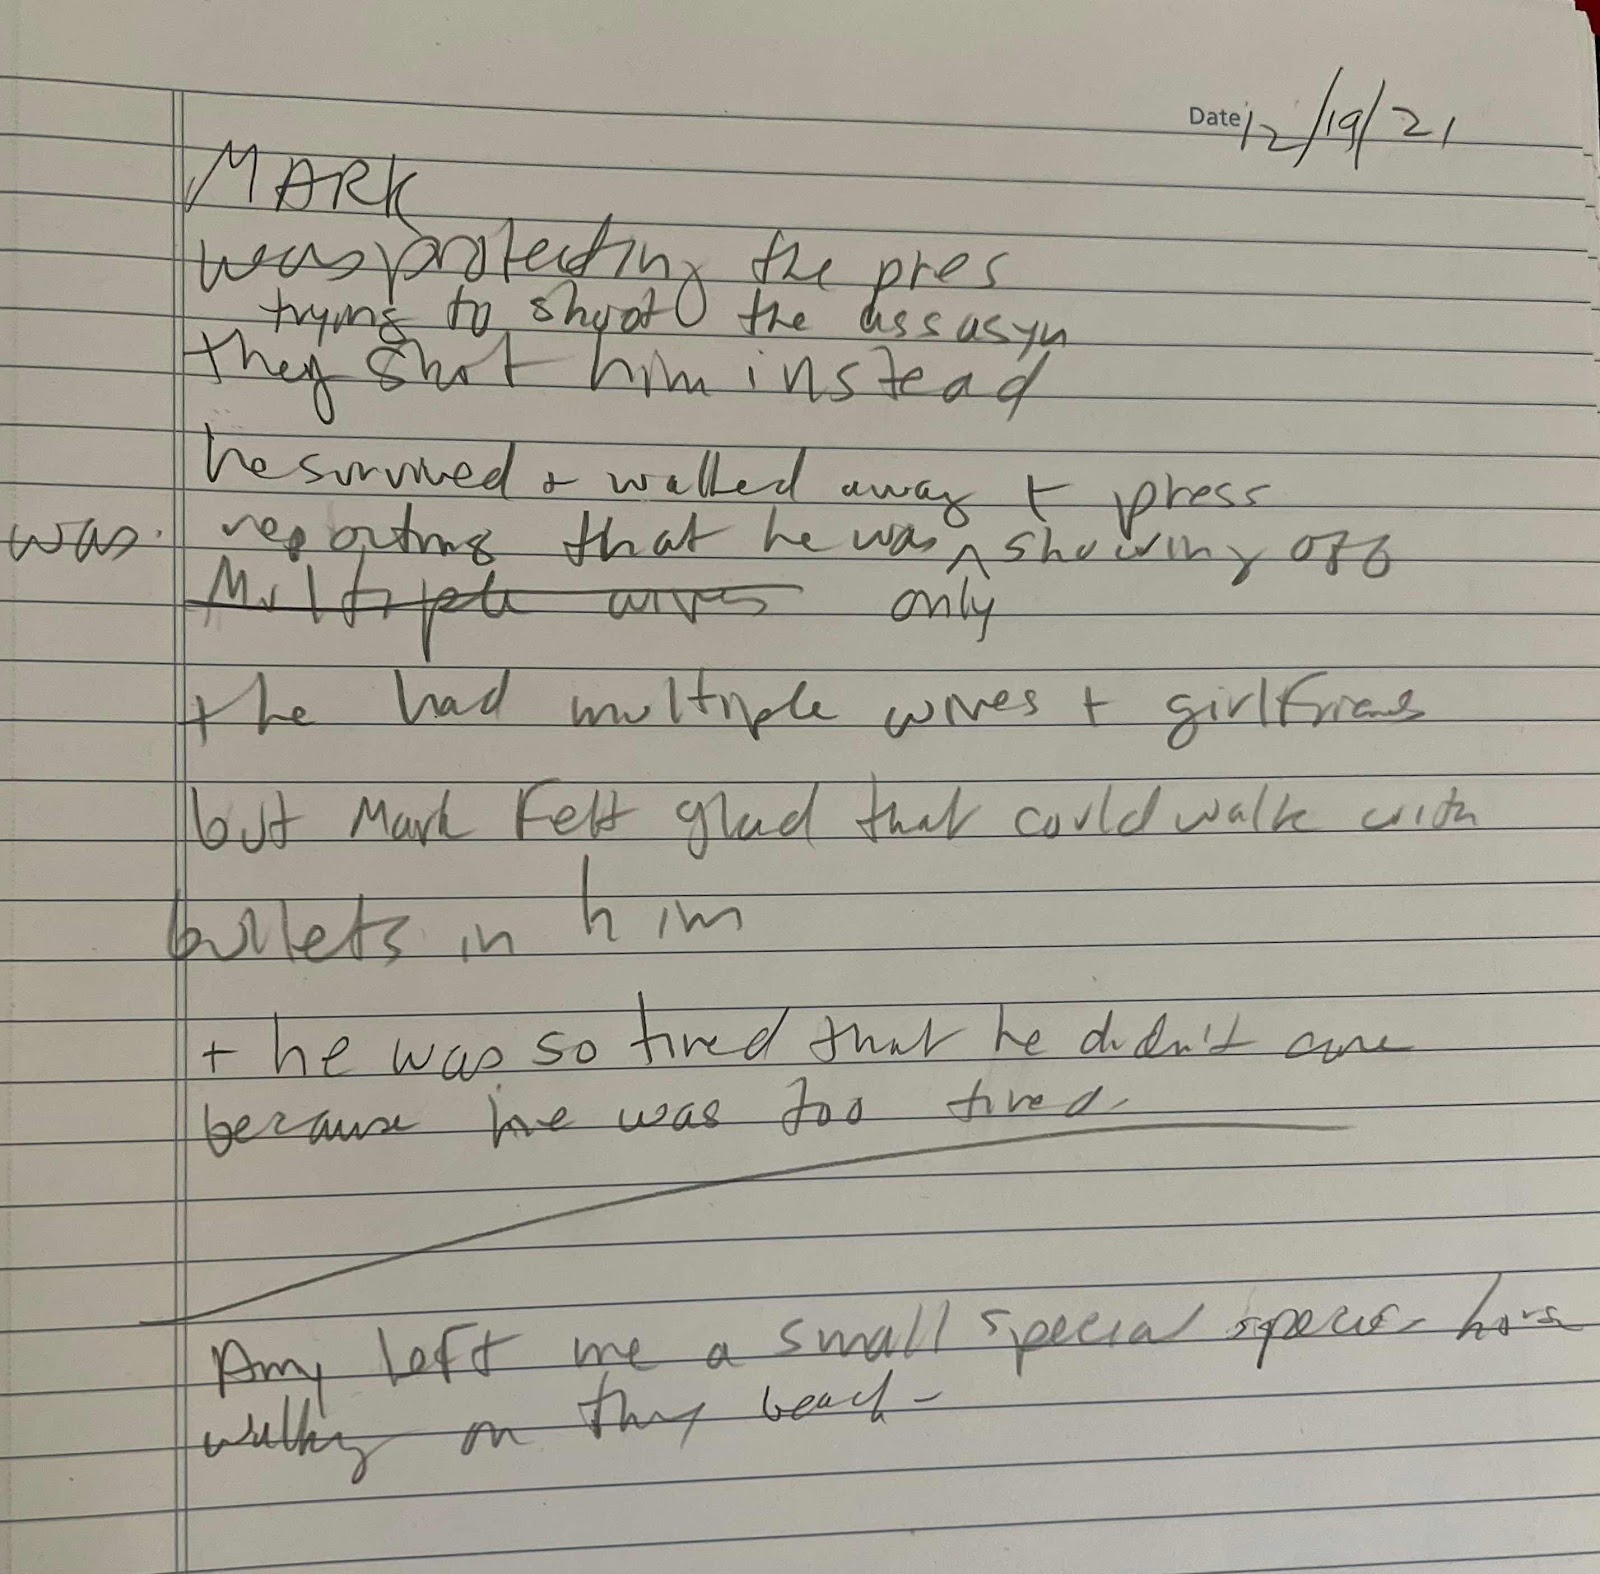 Date 12/19/21
MARK
was protecting the pres
trying to shoot the assasyn
they shot him instead
he survived + walked away + press
was reporting that he was ^ showing off
Multiple wives only
+ he had multiple wives + girlfriends
but Mark Felt glad that could walk with
bullets in him
+ he was so tired that he didn't care
because he was too tired.
Amy left me a small special
walking on the beach -